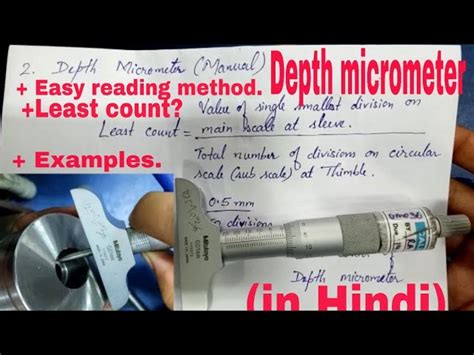 2. Depth Micrometer (Manual)
Depth micrometer
+ Easy reading method.
+Least count?
Value of single smallest division on
Least count = main scale at sleeve.
+ Examples.
Total number of divisions on circular
scale (sub scale) at Thimble.
0.5 mm
divisions
Mitutoyo
Mitutoyo
Depth micrometer
(in Hindi)